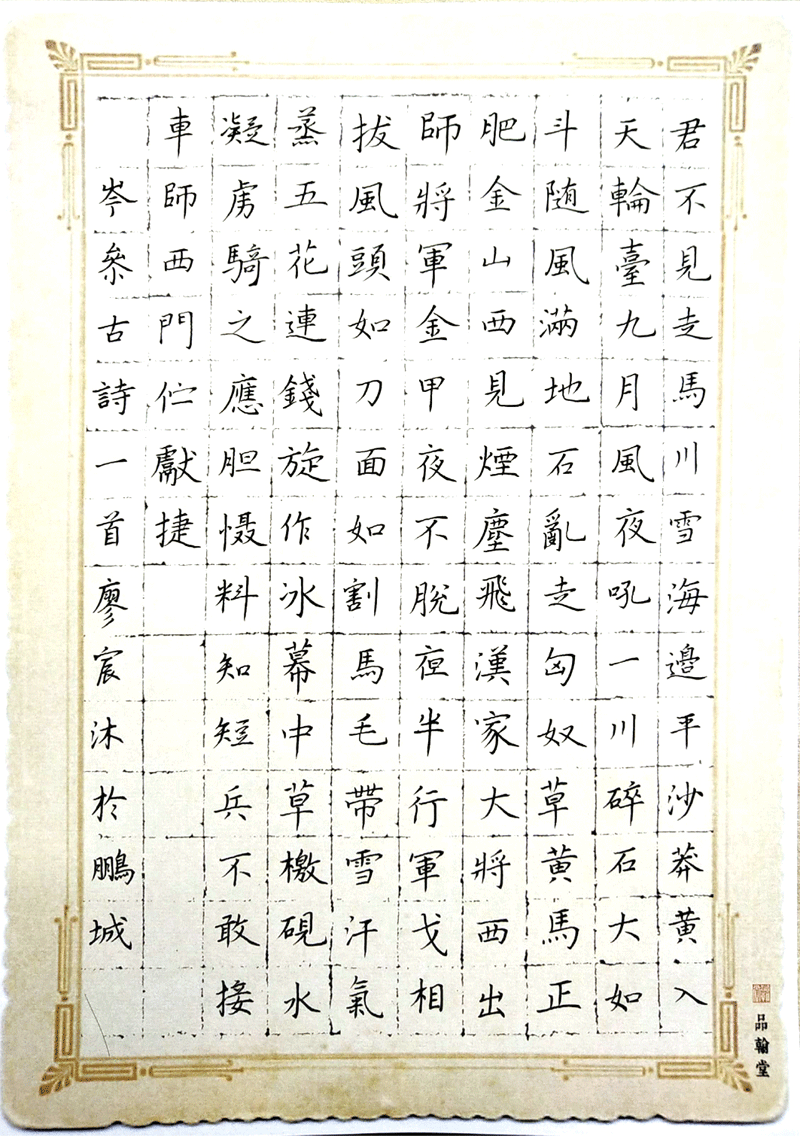 君不見走馬川雪海邉平沙莽黄入
天輪臺九月風夜吼一川碎石大如
斗随風滿地石亂走匈奴草黄馬正
肥金山西見煙塵飛漢家大將西出
師將軍金甲夜不脫夜半行軍戈相
拔風頭如刀面如割馬毛帶雪汗氣
蒸五花連錢旋作冰幕中草檄硯水
凝虜騎之應胆慑料知短兵不敢接
車師西門伫獻捷
岑叅古詩一首廖宸沐於鵬城
品翰堂